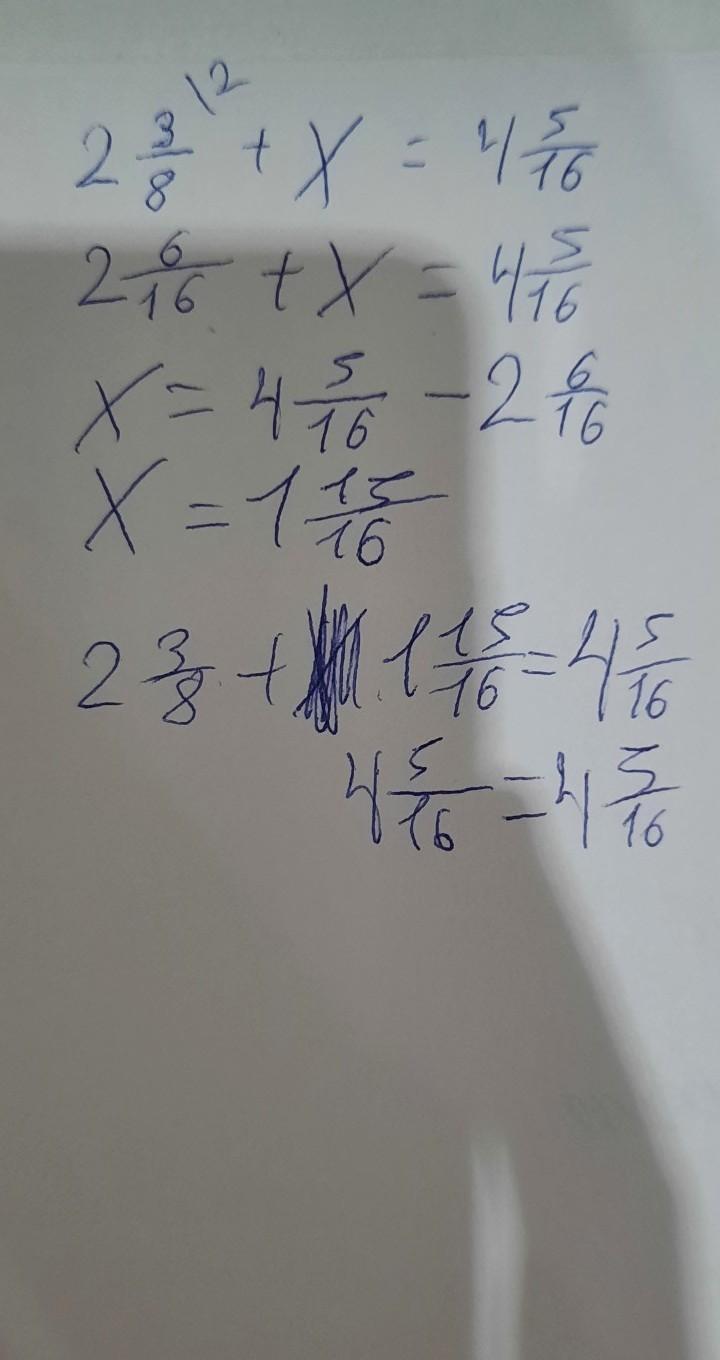 2 3/8 \2 + X = 4 5/16
2 6/16 + X = 4 5/16
X = 4 5/16 - 2 6/16
X = 1 15/16
2 3/8 + 1 15/16 = 4 5/16
4 5/16 = 4 5/16